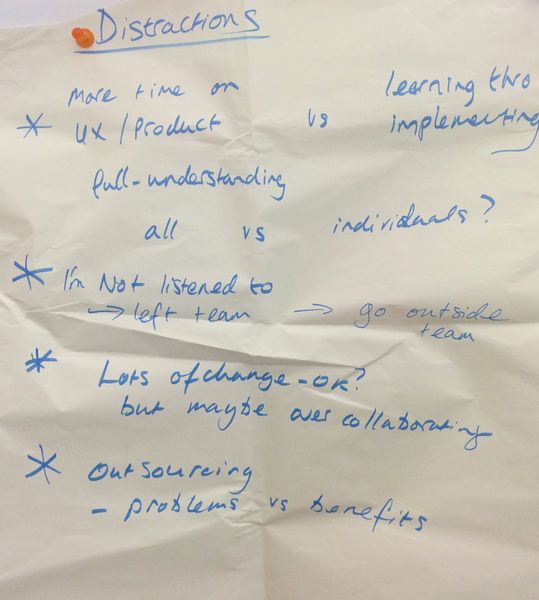 Distractions
More time on learning thro
* UX/Product vs implementing
full-understanding
all vs individuals?
* I'm Not listened to
→ left team → go outside team
* Lots of change - OK?
but maybe over collaborating
* Outsourcing
- problems vs benefits